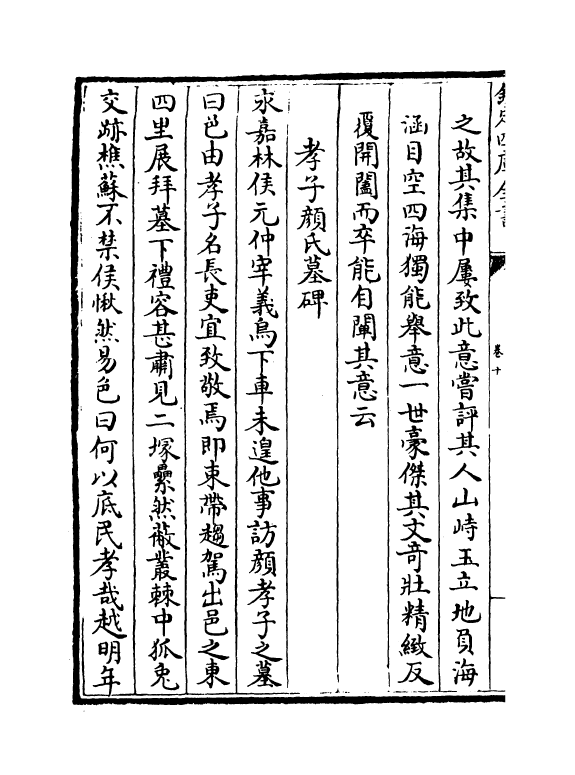 欽定四庫全書
卷十
之故其集中屢致此意嘗評其人山峙玉立地負海
涵目空四海獨能舉意一世豪傑其文竒壯精緻反
覆開闔而卒能自闡其意云
孝子顔氏墓碑
永嘉林侯元仲宰義烏下車未遑他事訪顔孝子之墓
曰邑由孝子名長吏宜致敬焉即束帶趨駕出邑之東
四里展拜墓下禮容甚肅見二塚纍然蔽叢棘中狐兔
交跡樵蘇不禁侯愀然易色曰何以底民孝哉越明年